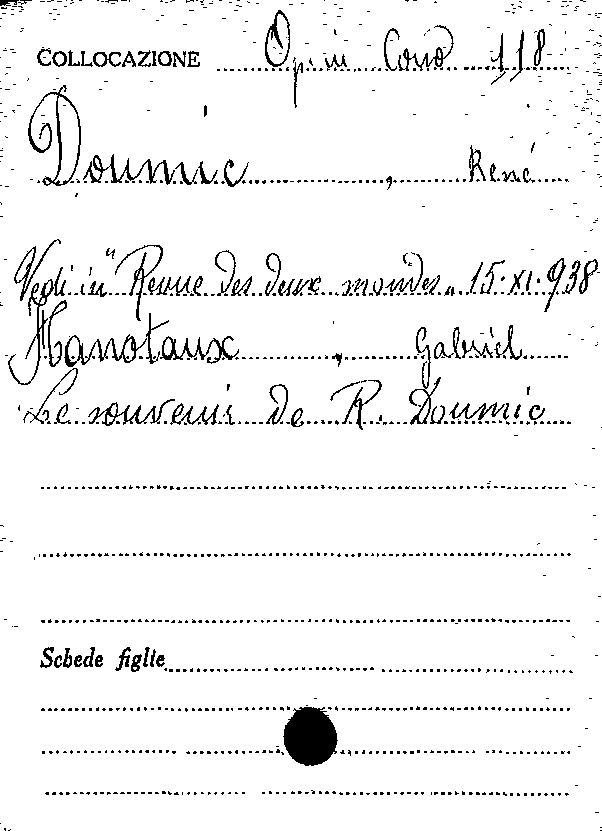 COLLOCAZIONE Op. in Cons 118
Doumic , René
Vedi in "Revue des deux mondes" 15.XI.938
Hanotaux , Gabriel
Le souvenir de R. Doumic
Schede figlie